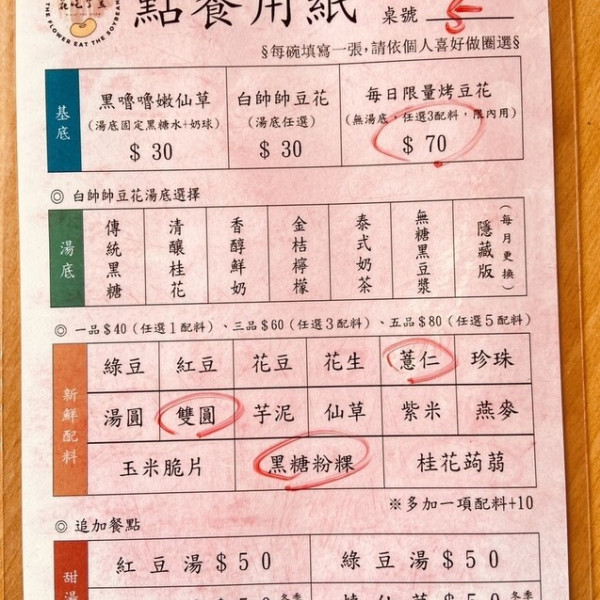 花吃了豆
THE FLOWER EAT THE SOYBEAN
點餐用紙
桌號 5
§每碗填寫一張,請依個人喜好做圈選§
基底
黑嚕嚕嫩仙草
(湯底固定黑糖水+奶球)
$ 30
白帥帥豆花
(湯底任選)
$ 30
每日限量烤豆花
(無湯底、任選3配料,限內用)
$ 70
◎ 白帥帥豆花湯底選擇
湯底
傳統黑糖
清釀桂花
香醇鮮奶
金桔檸檬
泰式奶茶
無糖黑豆漿
隱藏版
(每月更換)
◎ 一品$40(任選1配料)、三品$60(任選3配料)、五品$80(任選5配料)
新鮮配料
綠豆 紅豆 花豆 花生 薏仁 珍珠
湯圓 雙圓 芋泥 仙草 紫米 燕麥
玉米脆片 黑糖粉粿 桂花蒟蒻
※多加一項配料+10
◎ 追加餐點
甜湯
紅豆湯$50 綠豆湯$50
冬季 冬季